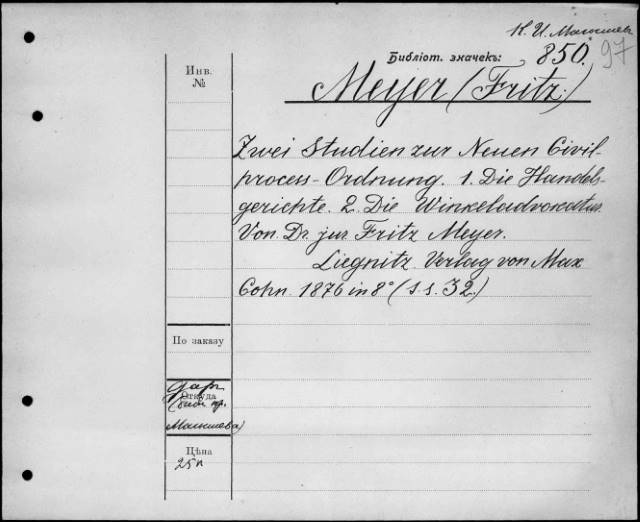 К. И. Малышев
97
Библіот. значекъ: 850.
Инв.
№
Meyer (Fritz.)
Zwei Studien zur Neuen Civil-
process-Ordnung. 1. Die Handels-
gerichte. 2. Die Winkeladvokatur.
Von Dr. jur. Fritz Meyer.
Liegnitz. Verlag von Max
Cohn. 1876 in 8° (S.S. 32.)
По заказу
Даръ
Откуда
(библ. пр.
Малышева)
Цѣна
25 к